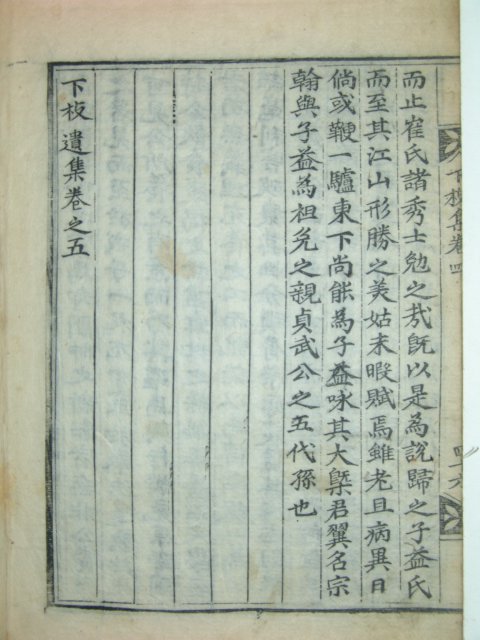 而止崔氏諸秀士勉之哉旣以是為說歸之子益氏
而至其江山形勝之美姑未暇賦焉雖老且病異日
倘或鞭一驢東下尚能為子益咏其大槩君翼名宗
翰與子益為祖免之親貞武公之五代孫也
下枝遺集卷之五
下枝集卷四
四十六